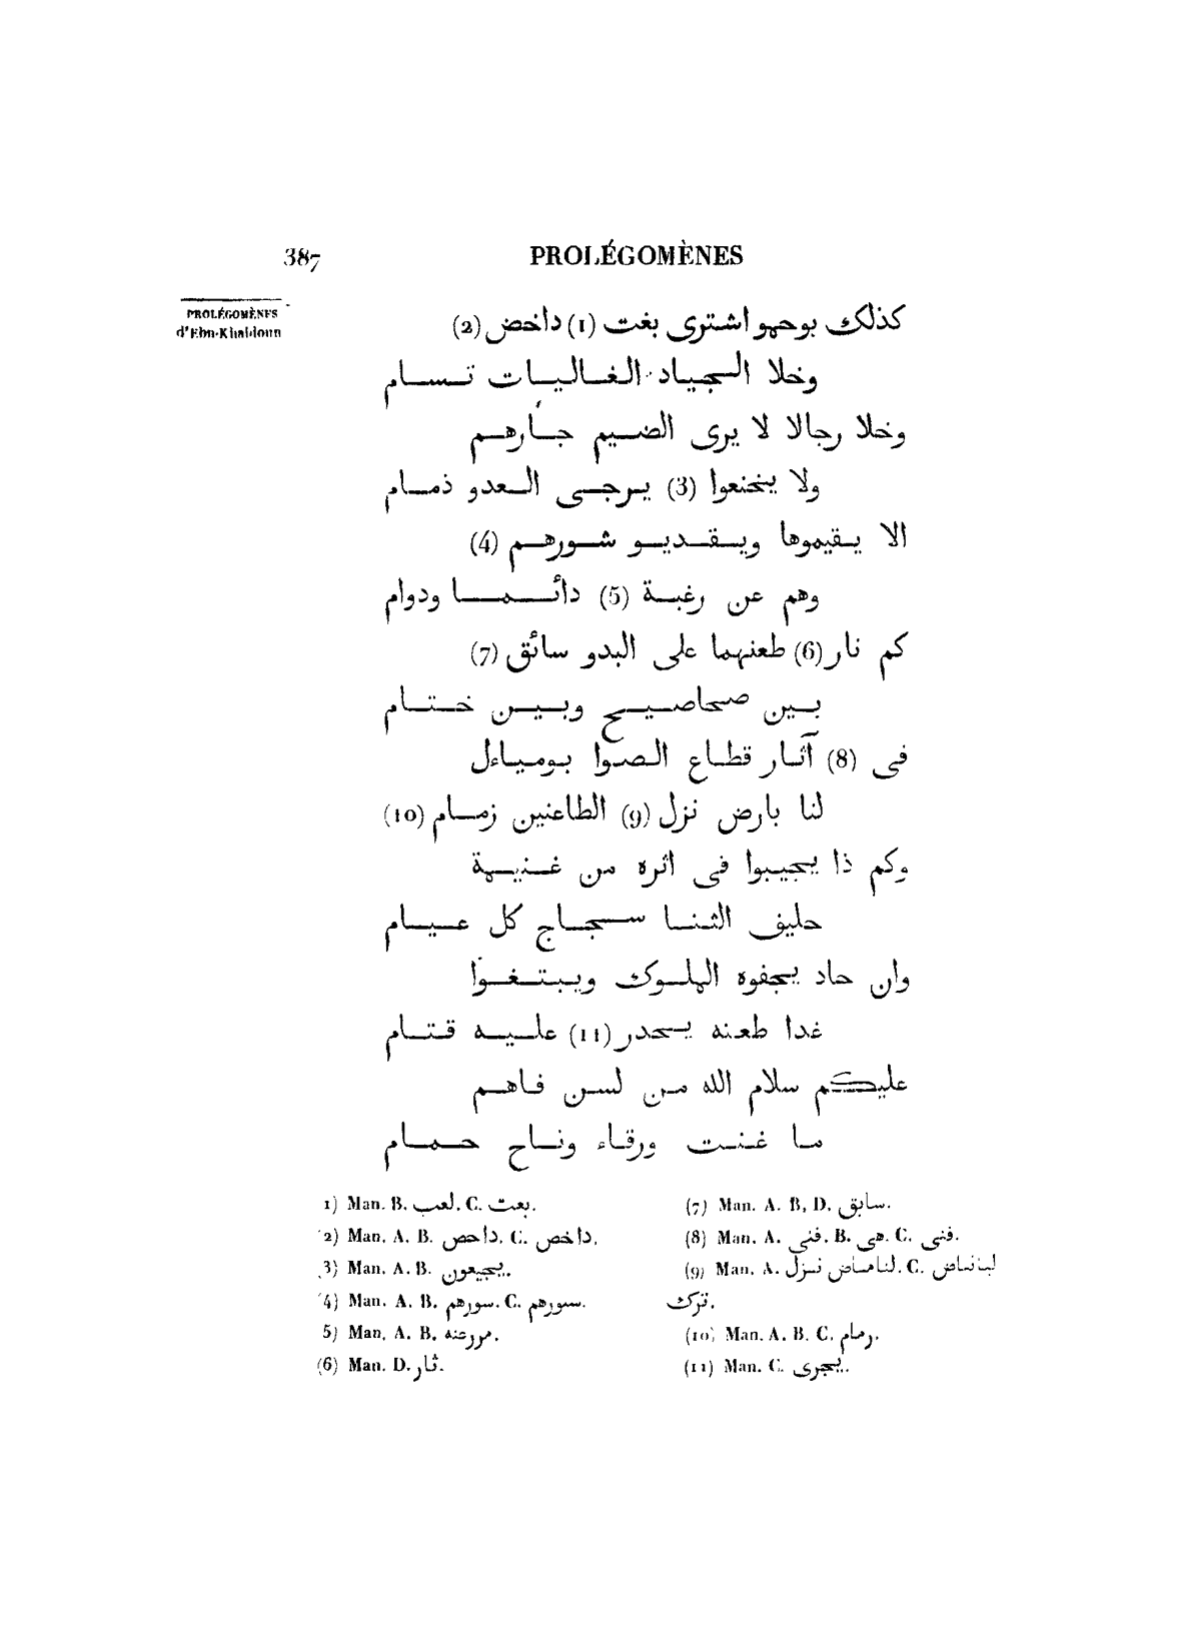 387
PROLÉGOMÈNES
PROLÉGOMÈNES
d'Ebn-Khaldoun
كذلك بوحهو اشترى بغت (1) داخض (2)
وخلا الجياد الغاليات تسام
وخلا رجالا لا يرى الضيم جارهم
ولا ينخنعوا (3) يرجى العدو ذمام
الا يقيموها ويقديو شورهم (4)
وهم عن رغبة (5) دائما ودوام
كم نار (6) طعنهما على البدو سائق (7)
بين صحاصيح وبين ختام
فى (8) آثار قطاع الصوا بومياءل
لنا بارض نزل (9) الطاعنين زمام (10)
وكم ذا يجيبوا فى اثره من غنيمة
حليف الثنا سجاج كل عيام
وان حاد يجفوه الملوك ويبتغوا
غدا طعنه يحدر (11) عليه قتام
عليكم سلام الله من لسن فاهم
ما غنت ورقاء وناح حمام
1) Man. B. لعب. C. بعت.
2) Man. A. B. داحص. C. داخص.
3) Man. A. B. يجيعون.
4) Man. A. B. سورهم. C. سىورهم.
5) Man. A. B.
(6) Man. D. ثار.
(7) Man. A. B, D. سابق.
(8) Man. A. فنى. B. هى. C. فنى.
(9) Man. A. نزل. C.
ترك.
(10) Man. A. B. C. رمام.
(11) Man. C. يجرى.